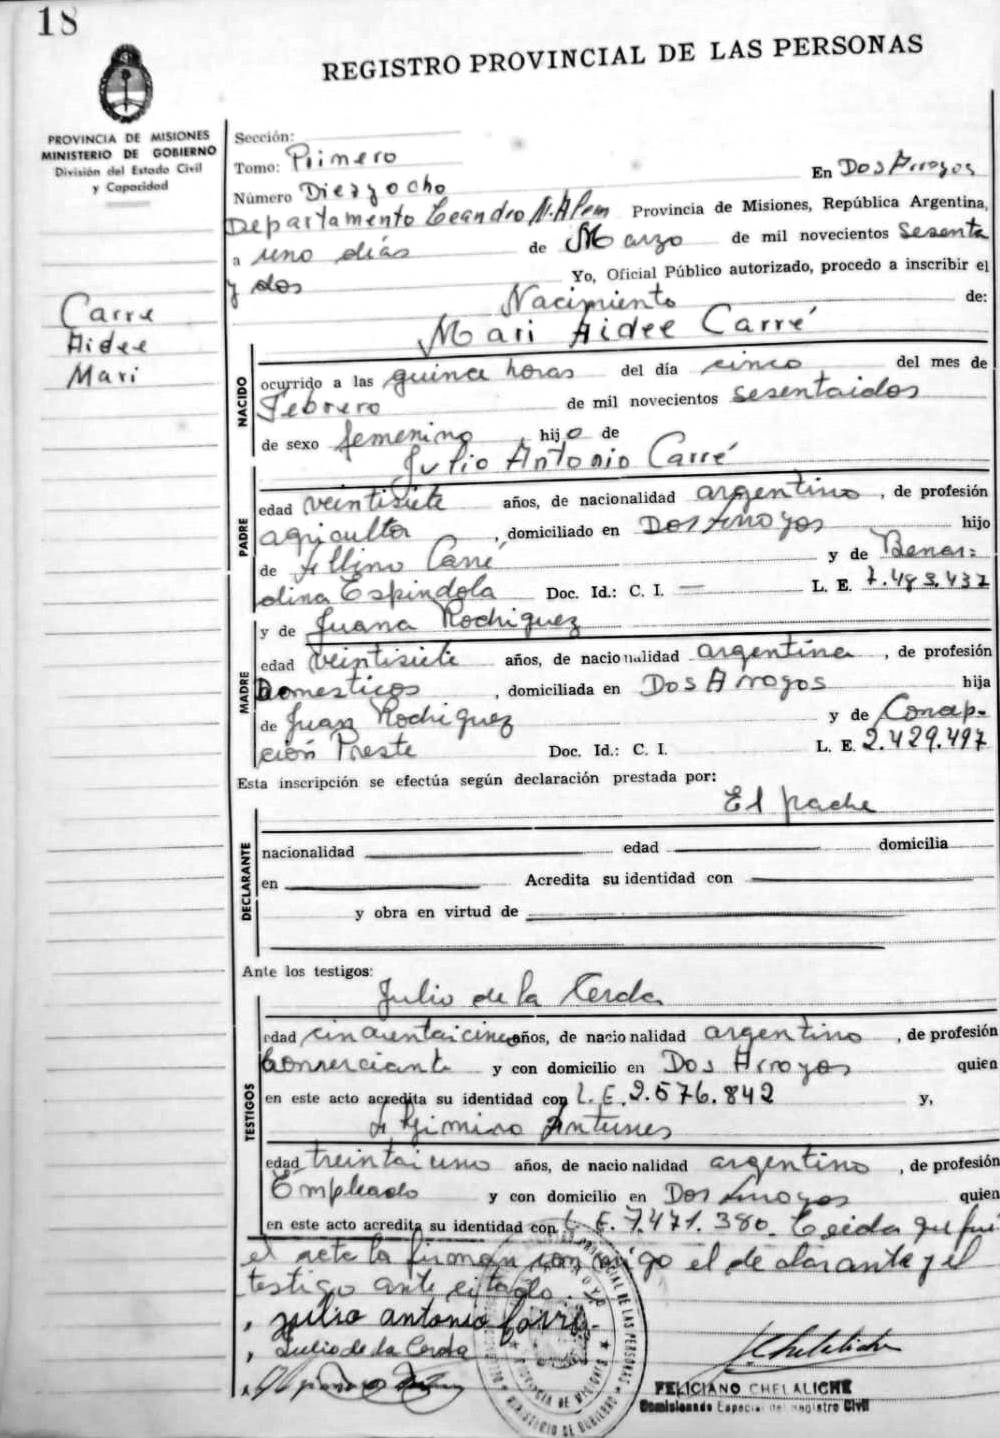 18
REGISTRO PROVINCIAL DE LAS PERSONAS
PROVINCIA DE MISIONES
MINISTERIO DE GOBIERNO
División del Estado Civil
y Capacidad
Carre
Aidee
Mari
Sección:
Tomo: Primero
En Dos Arroyos
Número Diezyocho
Departamento Leandro N. Alem Provincia de Misiones, República Argentina,
a uno días de Marzo de mil novecientos sesenta
y dos Yo, Oficial Público autorizado, procedo a inscribir el
Nacimiento de:
Mari Aidee Carré
NACIDO
ocurrido a las quince horas del día cinco del mes de
Febrero de mil novecientos sesentaidos
de sexo femenino, hijo de
Julio Antonio Carré
PADRE
edad veintisiete años, de nacionalidad argentino, de profesión
agricultor, domiciliado en Dos Arroyos hijo
de Carré y de Benar-
dina Espindola Doc. Id.: C. I. — L. E. 7.483.437
y de Juana Rodriguez
MADRE
edad veintisiete años, de nacionalidad argentina, de profesión
Domesticos, domiciliada en Dos Arroyos hija
de Juan Rodriguez y de Concep-
ción Preste Doc. Id.: C. I. L. E. 2.429.497
Esta inscripción se efectúa según declaración prestada por:
El padre
DECLARANTE
nacionalidad edad domicilia
en Acredita su identidad con
y obra en virtud de
Ante los testigos:
Julio de la Cerda
TESTIGOS
edad cincuentaicinco años, de nacionalidad argentino, de profesión
Comerciante y con domicilio en Dos Arroyos quien
en este acto acredita su identidad con L. E. 2.576.842 y,
Antunes
edad treintaiuno años, de nacionalidad argentino, de profesión
Empleado y con domicilio en Dos Arroyos quien
en este acto acredita su identidad con L. E. 7.471.380. Leida que fué
el acta la firman conmigo el declarante y el
testigo ante citado.
Julio antonio Carré
Julio de la Cerda
FELICIANO CHELALICHE
Comisionado Especial del Registro Civil